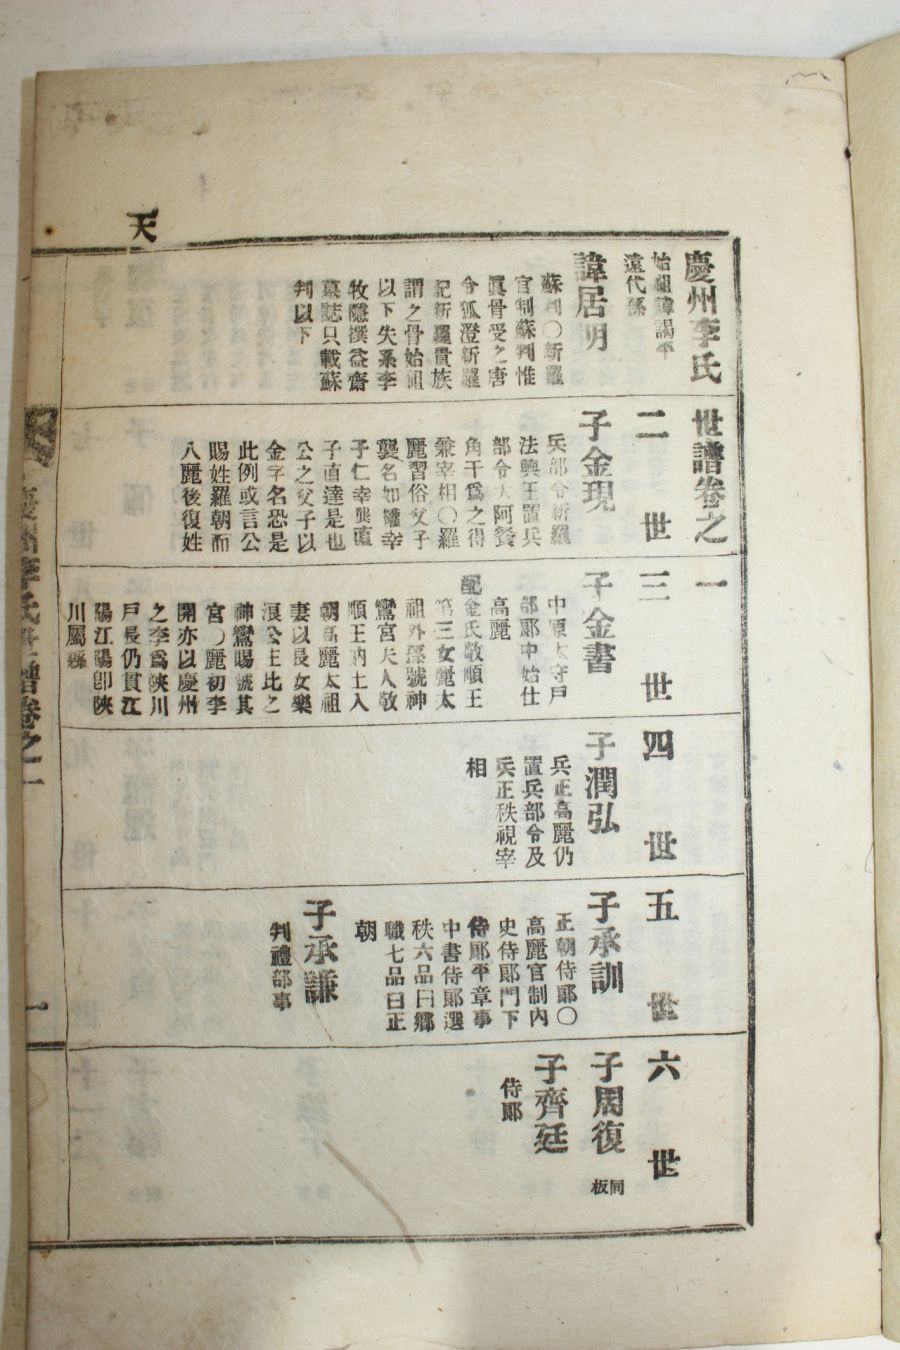 天
慶州李氏世譜卷之一
始祖諱謁平
遠代孫
諱居明
蘇判〇新羅
官制蘇判惟
眞骨受之唐
令狐澄新羅
記新羅貴族
謂之骨始祖
以下失系李
牧隱撰益齋
墓誌只載蘇
判以下
二世
子金現
兵部令新羅
法興王置兵
部令大阿餐
角干爲之得
兼宰相〇羅
麗習俗父子
襲名如權幸
子仁幸龔直
子直達是也
公之父子以
金字名恐是
此例或言公
賜姓羅朝而
入麗後復姓
三世
子金書
中原太守戶
部郞中始仕
高麗
配金氏敬順王
第三女麗太
祖外孫號神
鸞宮夫人敬
順王納土入
朝高麗太祖
妻以長女樂
浪公主此之
神鸞賜號其
宮〇麗初李
開亦以慶州
之李爲陜川
戶長仍貫江
陽江陽卽陜
川屬縣
四世
子潤弘
兵正高麗仍
置兵部令及
兵正秩視宰
相
五世
子承訓
正朝侍郞〇
高麗官制內
史侍郞門下
侍郞平章事
中書侍郞選
秩六品曰鄕
職七品曰正
朝
子承謙
判禮部事
六世
子周復
同板
子齊廷
侍郞
慶州李氏世譜卷之一
一